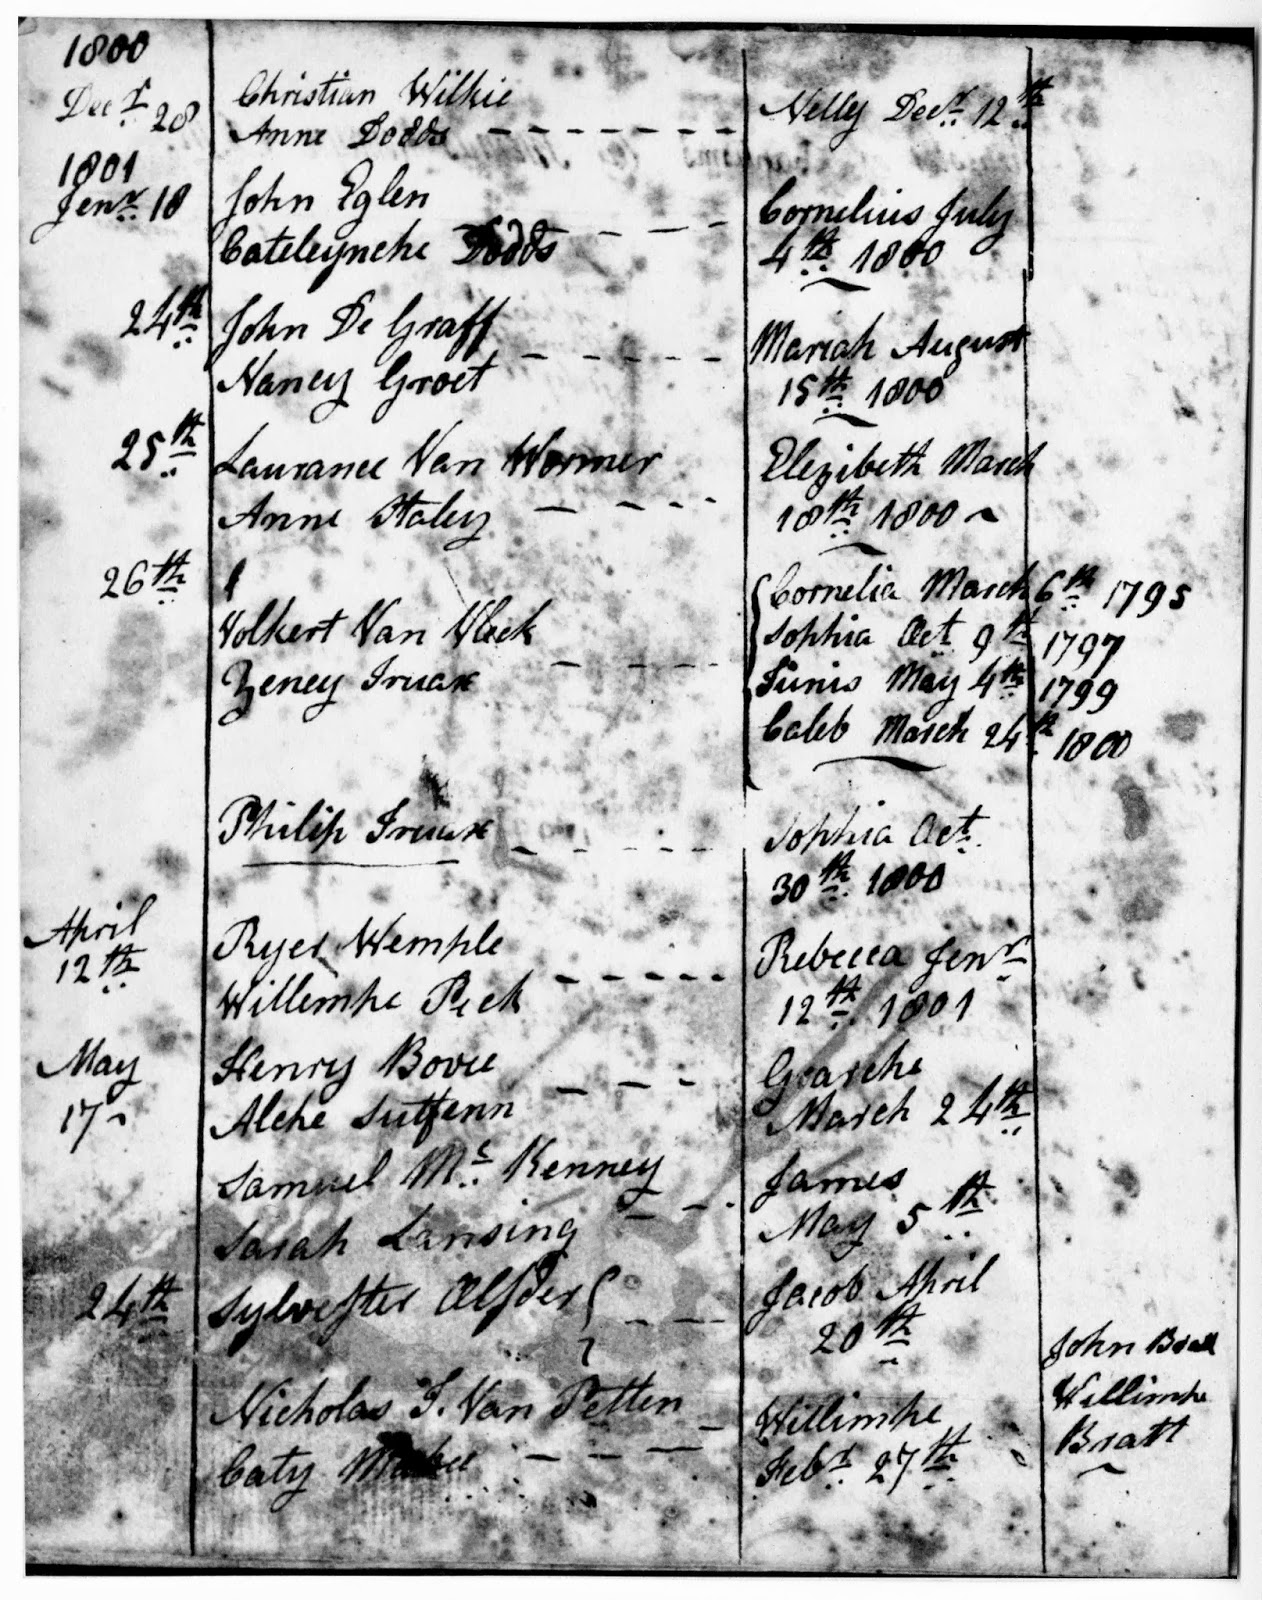 1800
Decr 28 Christian Wilkie Nelly Decr 12th
Anne Dodds
1801
Jenr 18 John Eglen Cornelius July
Cateleynche Dodds 4th 1800
24th John De Graff Mariah August
Nancy Groet 15th 1800
25th Lauranee Van Wormer Elezibeth March
Anne Staley 18th 1800
26th Cornelia March 6th 1795
Volkert Van Vleck Sophia Oct 9th 1797
Zeney Truax Tunis May 4th 1799
Caleb March 24th 1800
Philip Truax Sophia Oct.
30th 1800
April Ryer Wemple Rebecca Jenr
12th Willemhe Peek 12th 1801
May Henry Bovee Grasche
17 Alehe Sutfenn March 24th
Samuel Mc Kenney James
Sarah Lansing May 5th
24th Sylvester Jacob April
20th John Bratt
Nicholas Van Petten Willimhe Willimhe
Caty Febr 27th Bratt